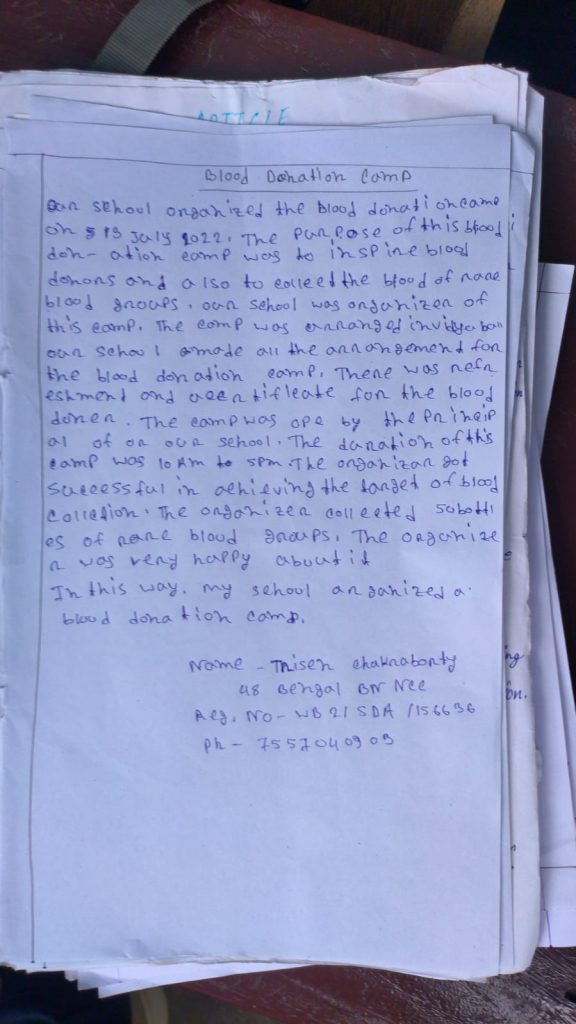 ARTICLE
Blood Donation Camp
Our school organized the blood donation camp
on 13 July 2022. The purpose of this blood
don-ation camp was to inspire blood
donors and also to colleed the blood of rare
blood groups. our school was organizer of
this camp. The camp was arranged in
our school made all the arrangement for
the blood donation camp. There was refr
eshment and a certificate for the blood
doner. The camp was ope by the Princip
al of or our school. The duration of this
camp was 10 Am to 5pm. The organizar got
successful in achieving the target of blood
collection. The organizer collected 50 bottl
es of rare blood groups. The organize
r was very happy about it
In this way, my school organized a
blood donation camp.
Name - Trisen Chakraborty
48 Bengal BN NCC
Reg. No - WB 21 SDA /156636
Ph - 7557040909
ng
on.